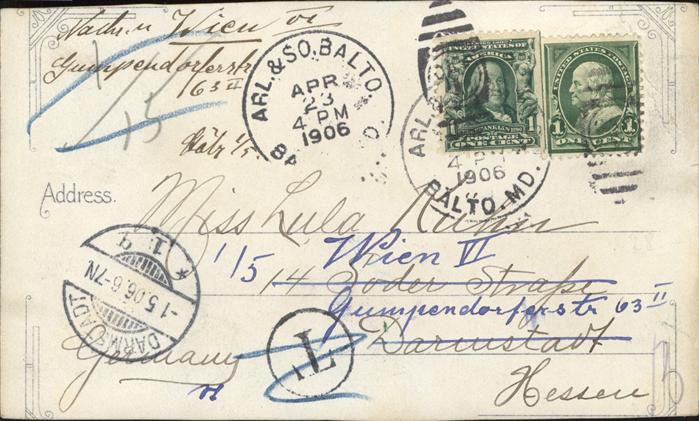 Wien VI
Gumpendorferstr
63 II
1/5
15
ARL. & SO. BALTO.
APR
23
4 PM
1906
UNITED STATES OF
AMERICA
FRANKLIN
POSTAGE
1 ONE CENT 1
UNITED STATES POSTAGE
1 ONE CENT 1
ARL. &
4 PM
1906
BALTO. MD.
Address.
Miss Lula Kuhn
1/5 Wien VI
14 Soder Straße
Gumpendorferstr 63 II
Darmstadt
Germany
Hessen
DARMSTADT
-1.5.06.6-7N.
* 1 g
T